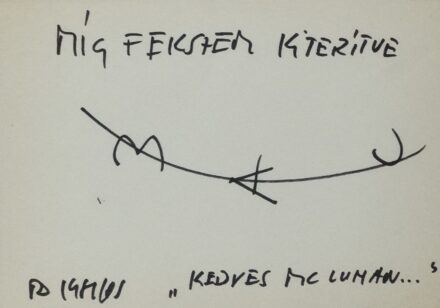 MÍG FEKSZEM KITERÍTVE
„KEDVES MC LUHAN..."